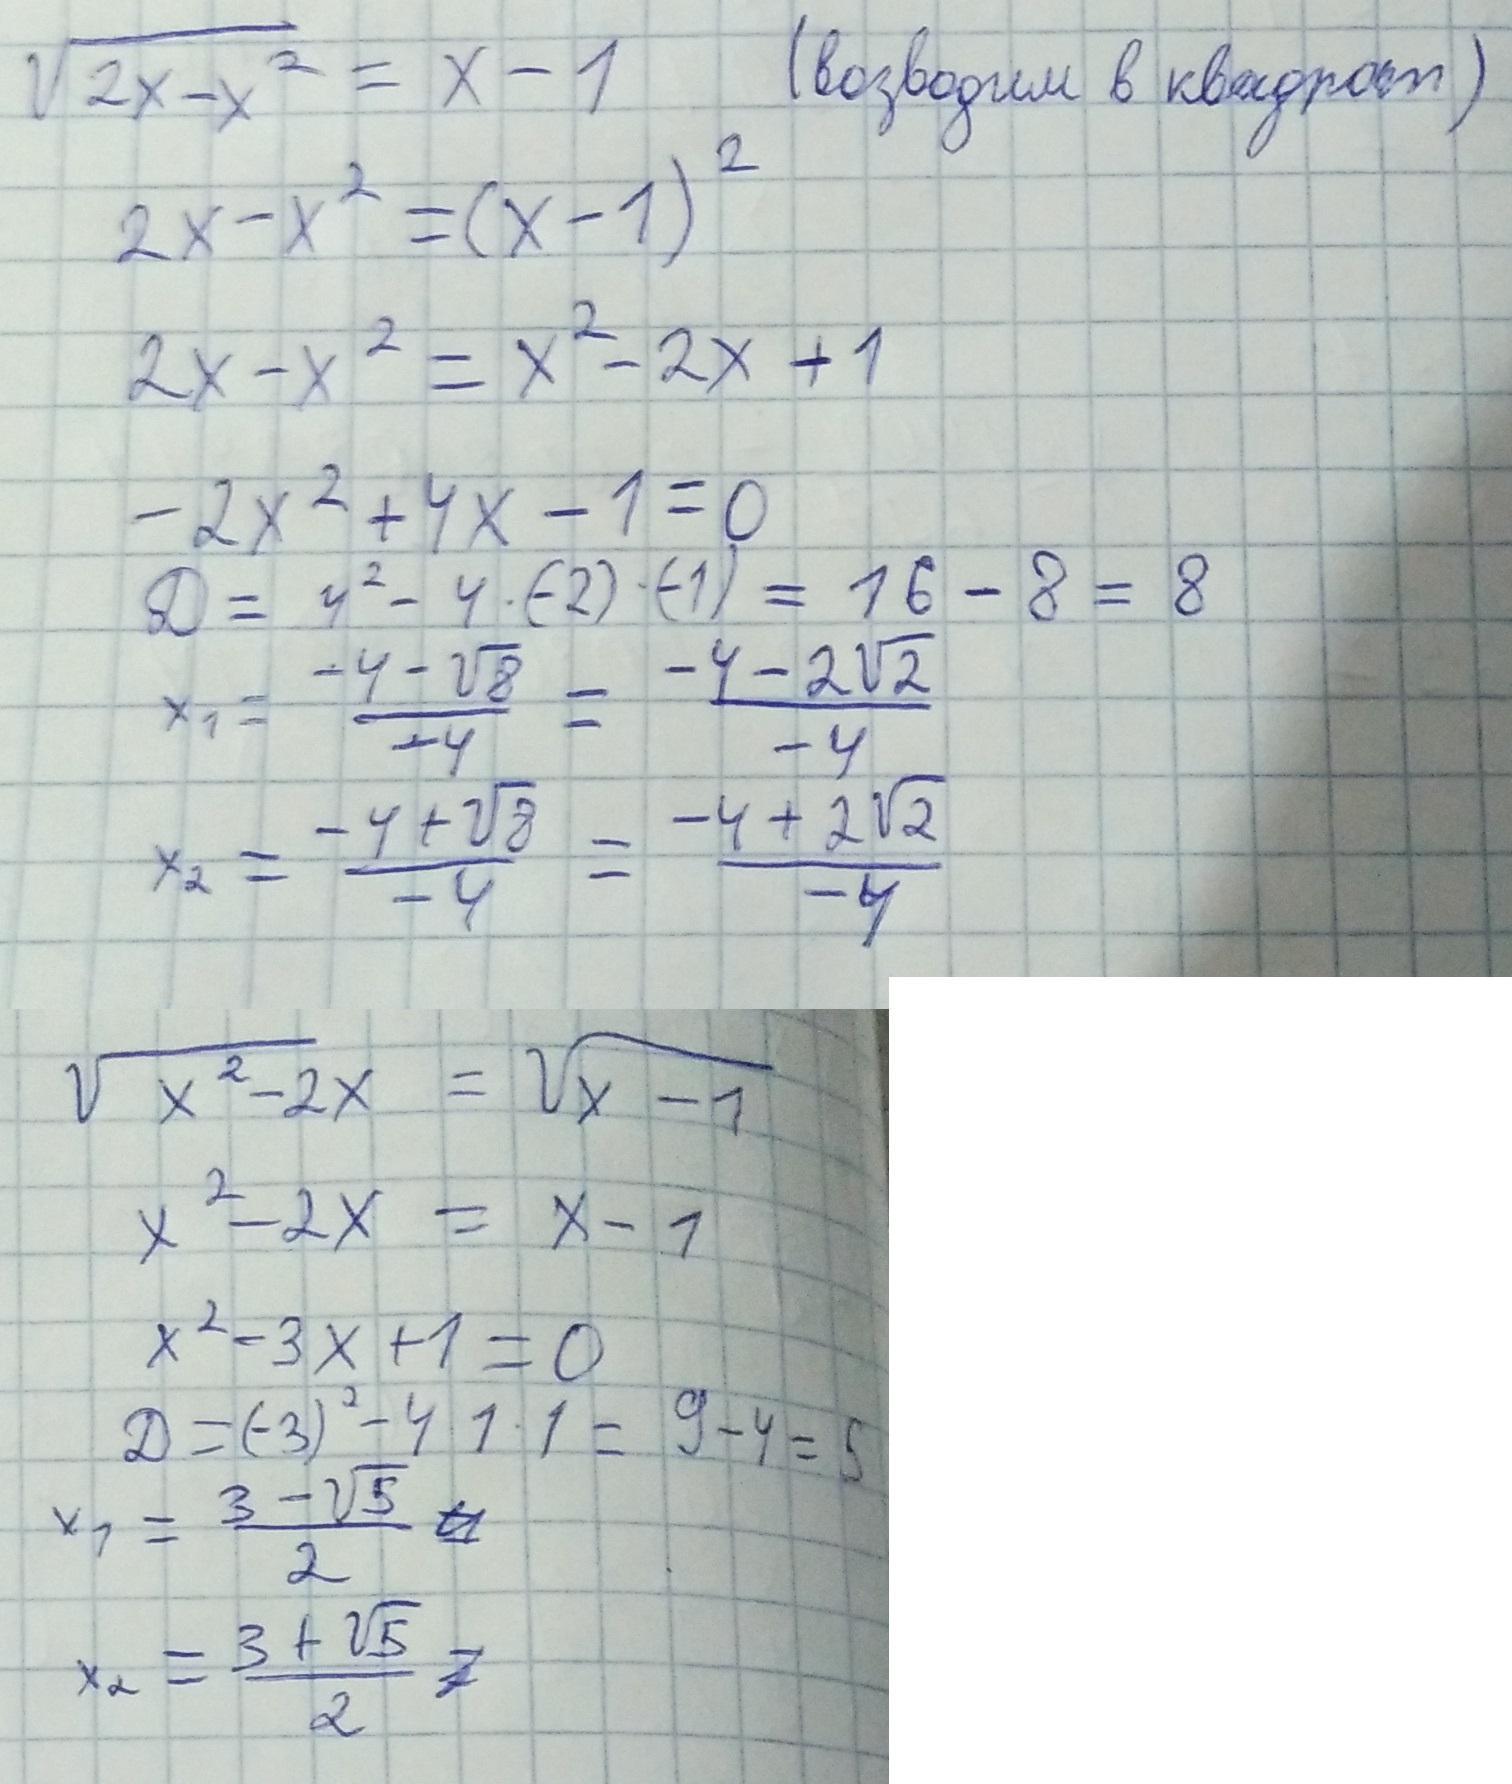 √(2x-x²) = x - 1 (возводим в квадрат)
2x - x² = (x - 1)²
2x - x² = x² - 2x + 1
-2x² + 4x - 1 = 0
D = 4² - 4 · (-2) · (-1) = 16 - 8 = 8
x₁ = (-4 - √8)/(-4) = (-4 - 2√2)/(-4)
x₂ = (-4 + √8)/(-4) = (-4 + 2√2)/(-4)
√(x² - 2x) = √(x - 1)
x² - 2x = x - 1
x² - 3x + 1 = 0
D = (-3)² - 4 · 1 · 1 = 9 - 4 = 5
x₁ = (3 - √5)/2
x₂ = (3 + √5)/2